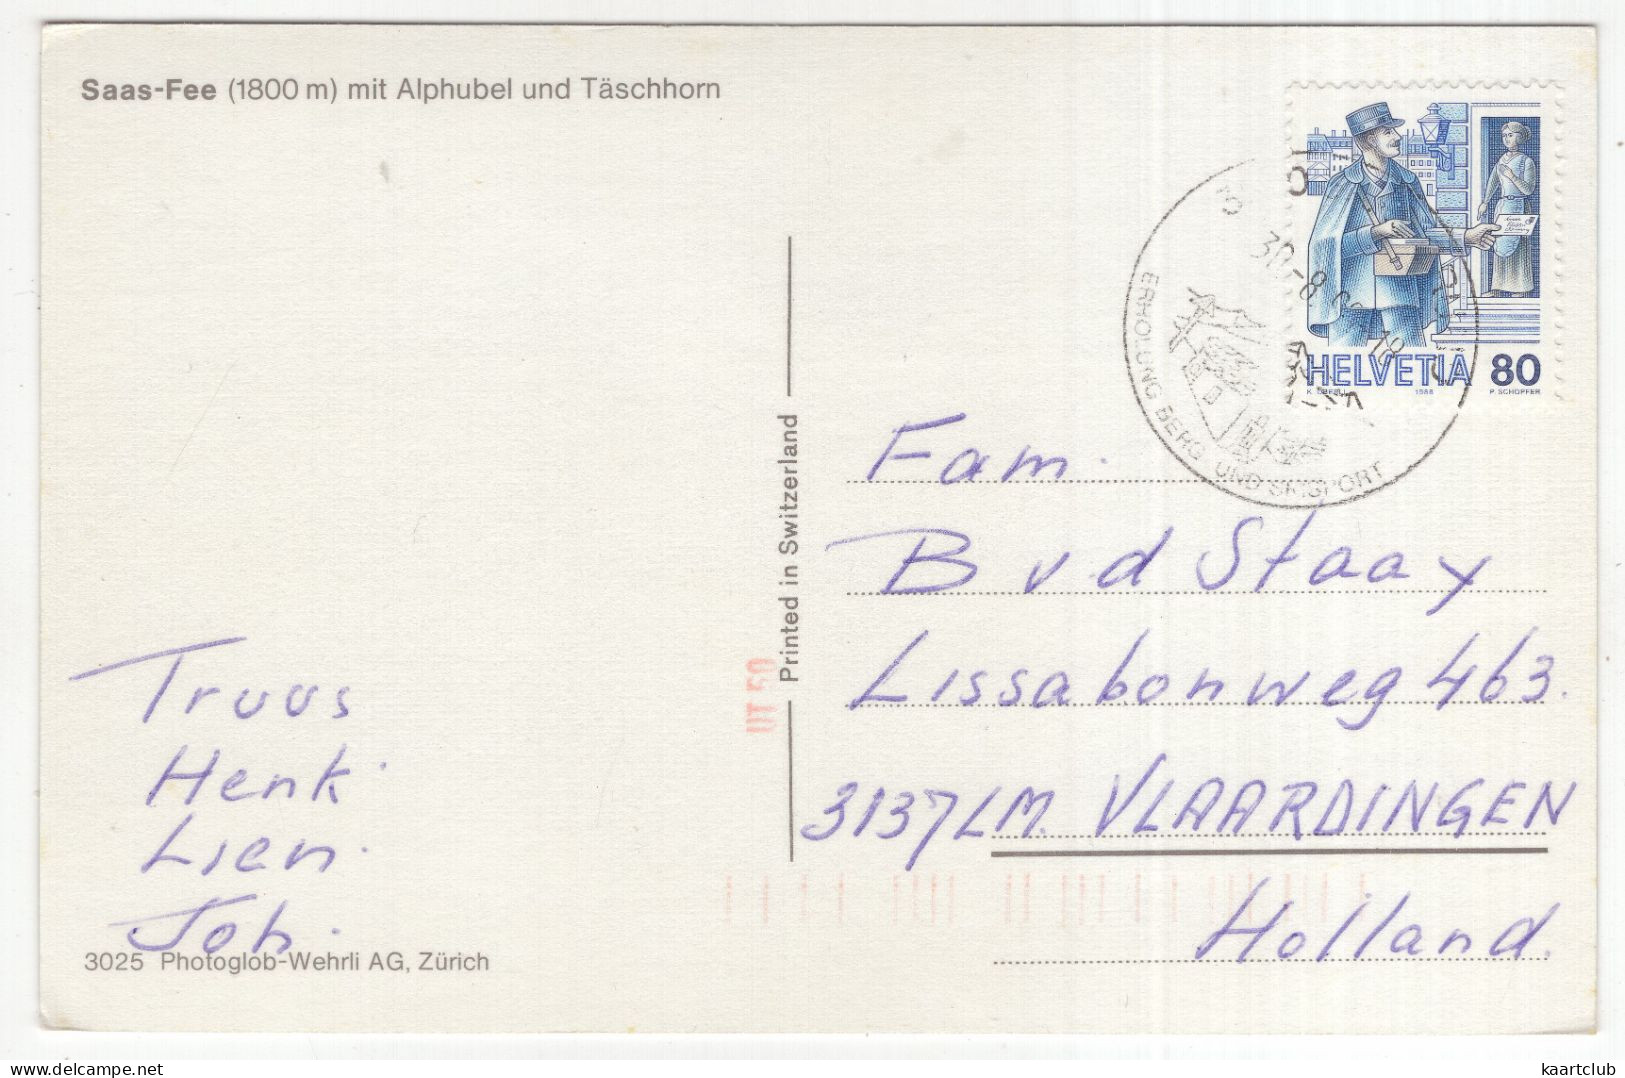 Saas-Fee (1800 m) mit Alphubel und Täschhorn
HELVETIA 80
1988
P. SCHOPFER
30.-8.
18
ERHOLUNG BERG UND SKISPORT
Printed in Switzerland
UT 50
Fam.
B v d Staay
Lissabonweg 463.
3137 LM. VLAARDINGEN
Holland.
Truus
Henk
Lien.
Joh.
3025 Photoglob-Wehrli AG, Zürich
kaartclub